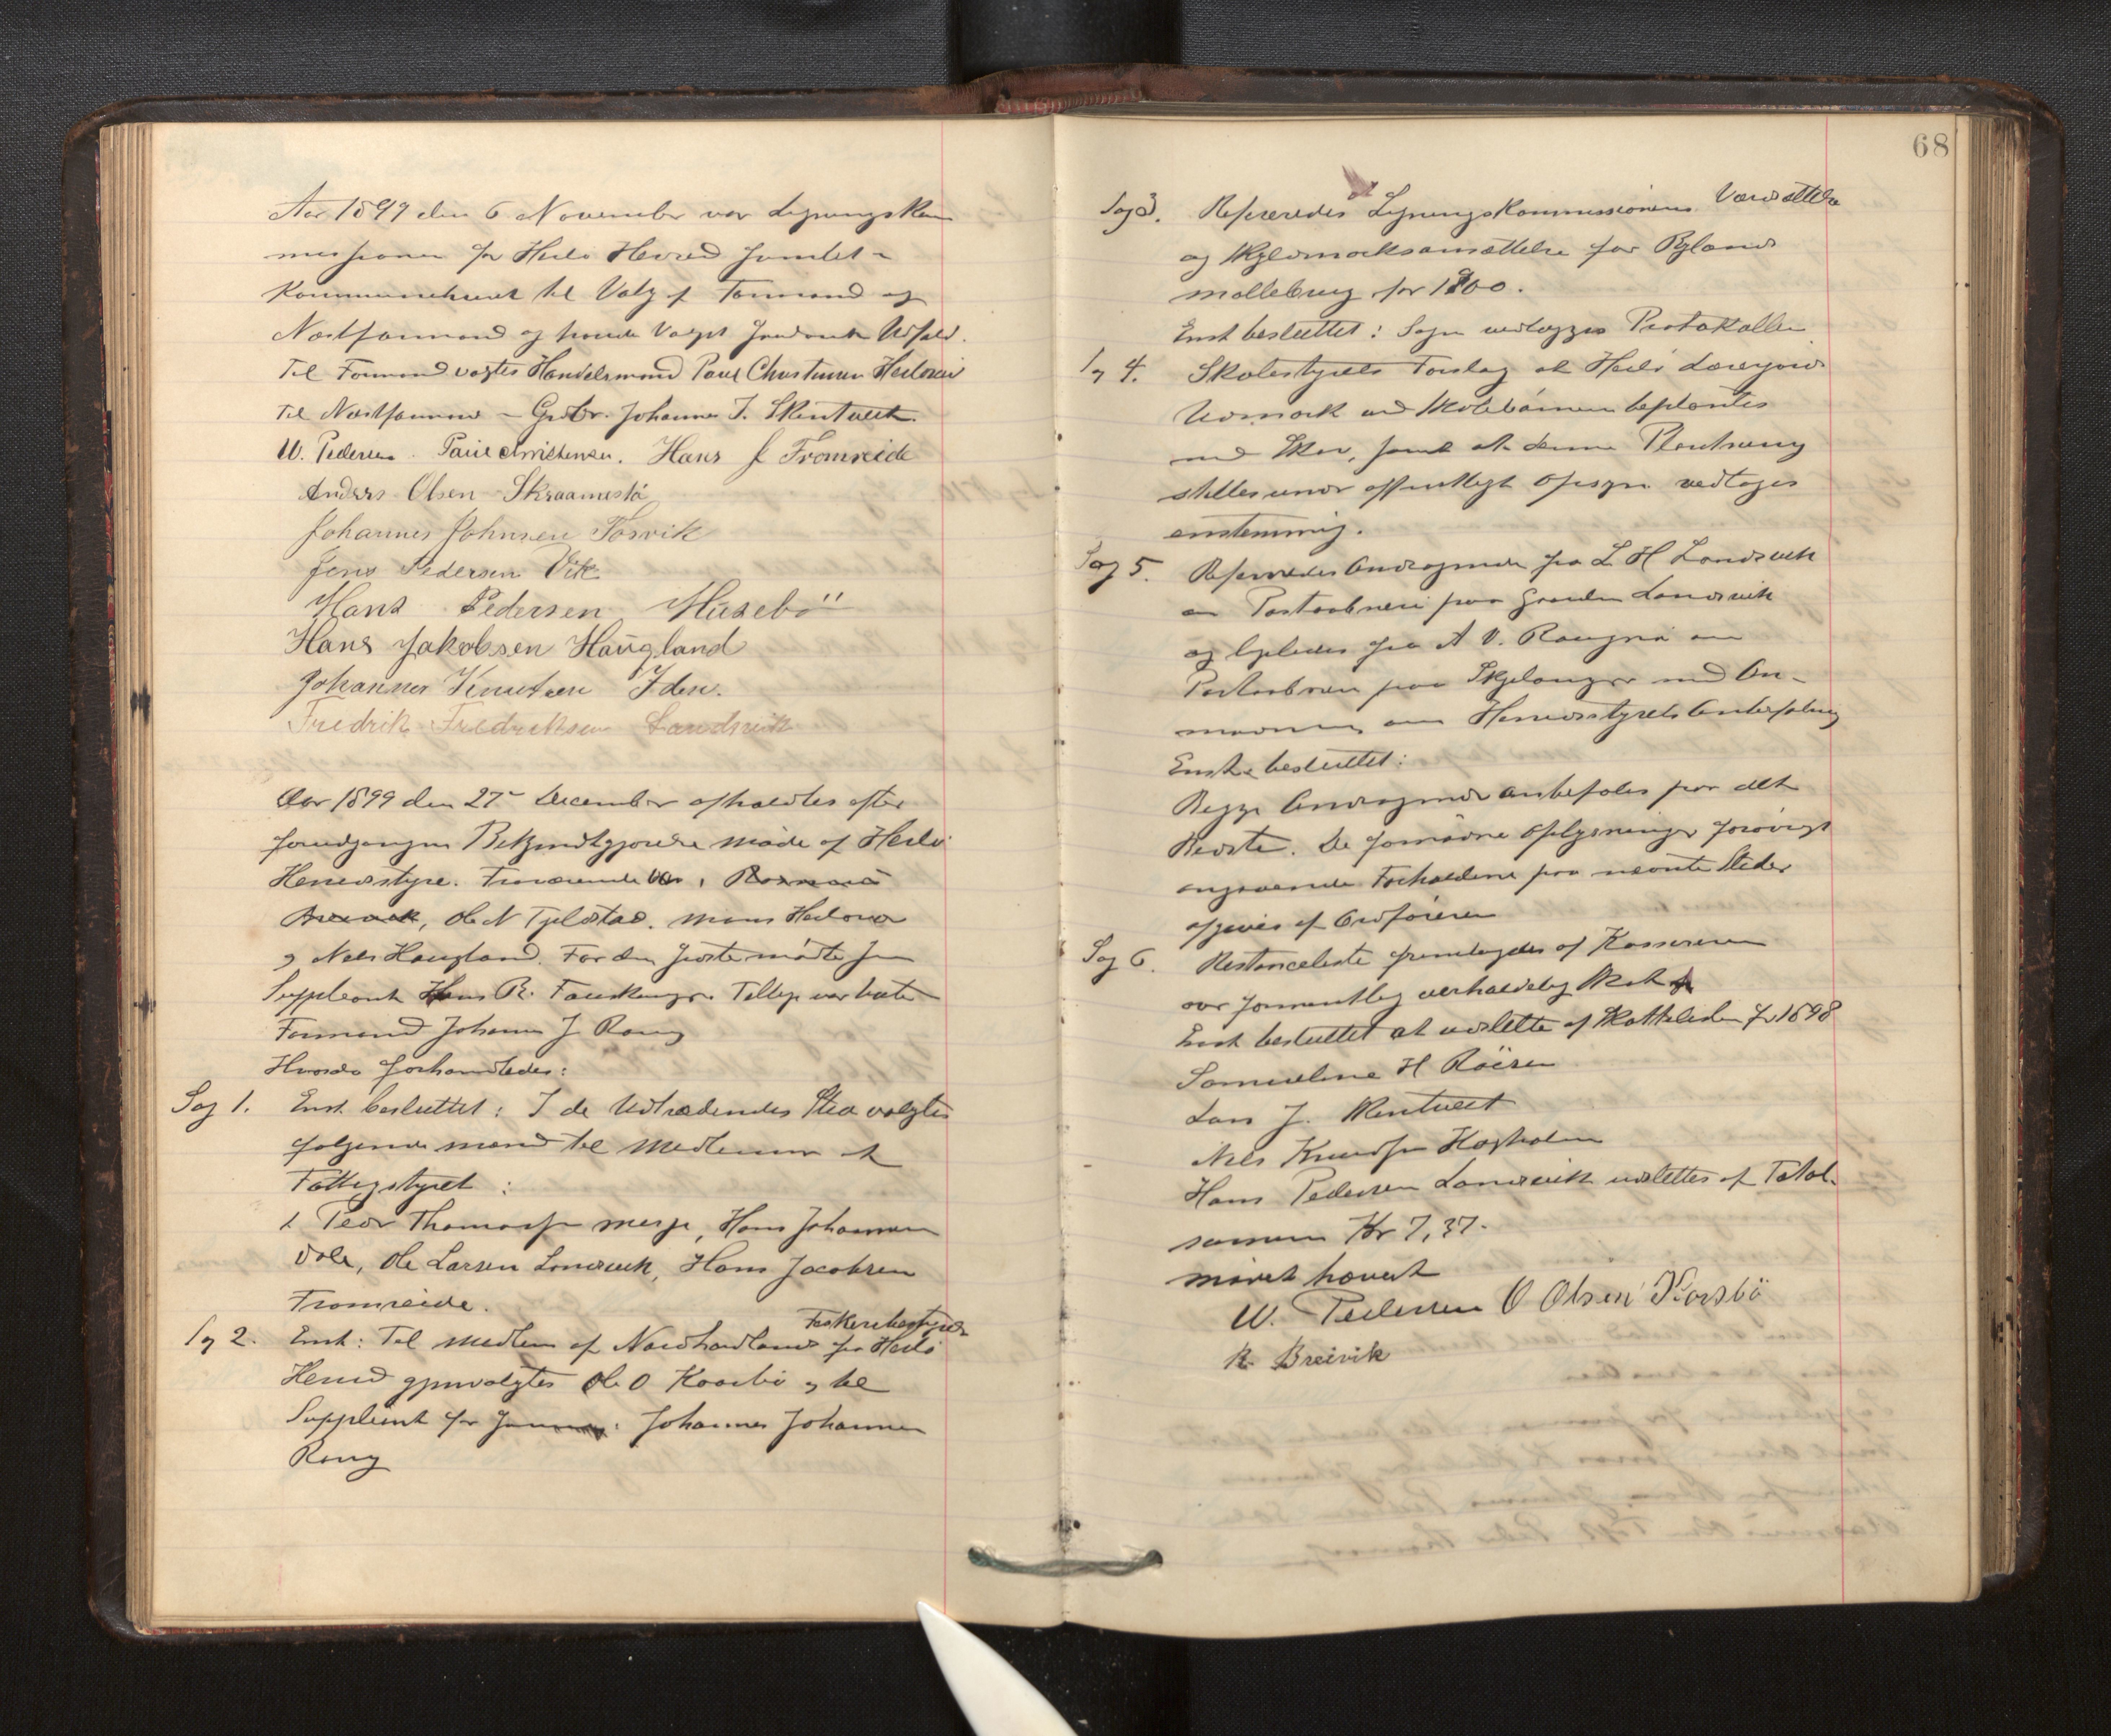 Aar 1899 den 6 November var Ligningskom
missionen for Herlø Herred samlet i
Kommunehuset til Valg af Formand og
Næstformand og havde Valget saadant Udfald.
Til Formand valgtes Handelsmand Paul Christensen Herløvær
Til Næstformand - Grdbr. Johannes J. Skintveit
W. Pedersen. Paul Christensen. Hans J Fromreide
Anders Olsen Skraamestø
Johannes Johnsen Tosvik
Jens Pedersen Vik
Hans Pedersen Husebö
Hans Jakobsen Haugland
Johannes Knutsen Iden.
Fredrik Fredriksen Landsvik
Aar 1899 den 27 December afholdtes efter
forudgangen Bekjendtgjørelse møde af Herlø
Herredsstyre. Fraværende var
Breivik, Ole N Tjeldstad. Mons Herløvær
og Nels Haugland. For den første mødte som
Suppleant Hans R. Fauskanger. Tillige var
Formand Johannes J Rong
Hvorda forhandledes:
Sag 1. Enst. besluttet: I de Udtrædendes Sted valgtes
følgende mænd til Medlemmer af
Fattigstyret:
Peder Thomassen, Hans Johannesen
Dale, Ole Larsen Landsvik, Hans Jacobsen
Fromreide.
Fiskeribestyrer
Sag 2. Enst: Til Medlem af Nordhordlands for Herlø
Herred gjenvalgtes Ole O Kaarbø og til
Suppleant for samme: Johannes Johannesen
Rong
68
Sag 3. Refereredes Ligningskommissionens Værdsættelse
og Skyldmarksansættelse for Rylands
møllebrug for 1900.
Enst besluttet: Sagen vedlægges Protokollen.
Sag 4. Skolestyrets Forslag at Herlø Lærergaards
Udmark ved Skolebørnene beplantes
med Skov, samt at denne Plantning
stilles under offentligt Opsyn vedtages
enstemmig.
Sag 5. Refereredes Andragende fra L H Landsvik
om Postaabneri paa Gaarden Landsvik
og ligeledes fra A V. om
Postaabneri paa Skjelanger med An-
modning om Herredsstyrets Anbefaling
Enst. besluttet:
Begge Andragender anbefales paa det
Bedste. De fornødne Oplysninger forøvrigt
angaaende Forholdene paa nævnte Steder
afgives af Ordføreren
Sag 6. Restanceliste fremlagdes af Kassereren
over formentlig uerholdelig Skat
Enst besluttet at udslette af Skattelisten for 1898
Samueline H Røisen
Lars J. Skintveit
Nils Knudsen Hagholmen
Hans Pedersen Landsvik udslettes af Total-
summen Kr 7,37.
mødet hævet
W. Pedersen O Olsen Korsbö
R. Breivik